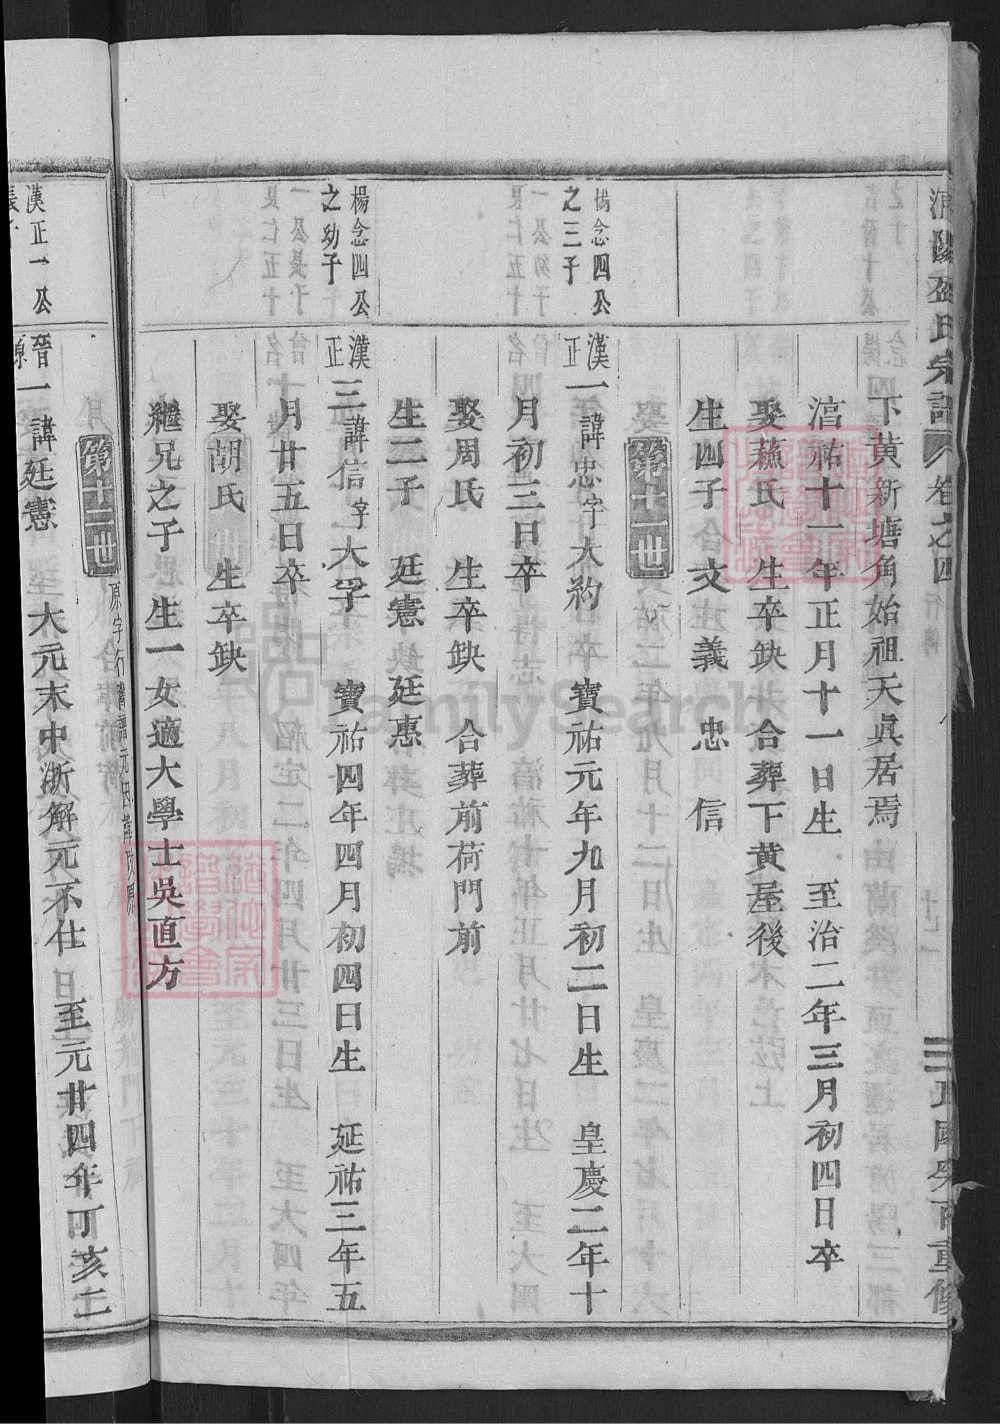 氏宗譜 卷之四
重修
下黃新塘角始祖天眞居焉
淳祐十一年正月十一日生 至治二年三月初四日卒
娶蘇氏 生卒缺 合葬下黃屋後
生四子 文 義 忠 信
第十一世
楊念四公
之三子
漢正一諱忠字大約 寶祐元年九月初二日生 皇慶二年十
月初三日卒
娶周氏 生卒缺 合葬前荷門前
生二子 廷憲 廷惠
楊念四公
之幼子
漢正三諱信字大孚 寶祐四年四月初四日生 延祐三年五
月廿五日卒
娶胡氏 生卒缺
繼兄之子 生一女適大學士吳直方
第十二世
漢正一公
長子
晉原一諱廷憲 大元末中浙解元不仕 至元廿四年丁亥二
FamilySearch